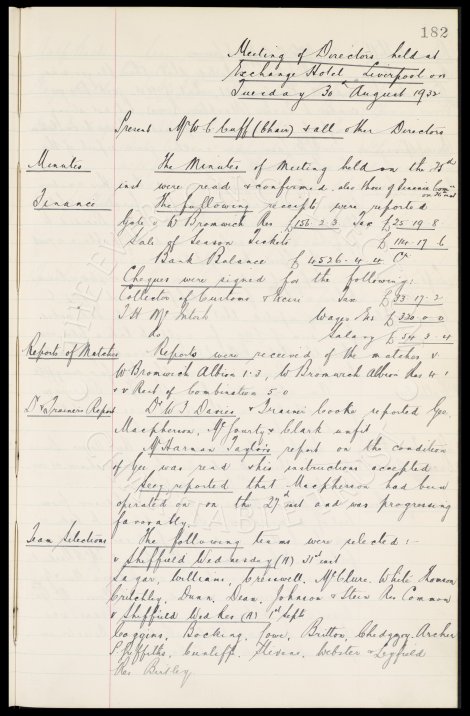 182
Meeting of Directors held at
Exchange Hotel Liverpool on
Tuesday 30th August 1932
Present Mr W C Cuff (Chair) & all other Directors
Minutes The Minutes of Meeting held on the
inst were read & confirmed. also those of Finance Comm
Finance The following receipts were reported
Gate v W Bromwich Res £156 2 3 Tax £25 19 8
Sale of Season Tickets £ 114 17 6
Bank Balance £4526 4 4 Cr
Cheques were signed for the following:
Collector of Customs & Excise Tax £ 93 17 2
T H McIntosh Wages &c £ 330 0 0
do Salary £ 54 3 4
Reports of Matches Reports were received of the matches v
W Bromwich Albion 1-3, W Bromwich Albion Res 4-1
& v Rest of Combination 5-0
Dr & Trainers Report Dr W J Davies & Trainer Cooke reported Gee,
Macpherson, McGourty & Clark unfit
Mr Harman Taylors report on the condition
of Gee was read & his instructions accepted
Secy reported that Macpherson had been
operated on on the 27th inst and was progressing
favorably.
Team Selections The following teams were selected :-
v Sheffield Wednesday (A) 31st inst
Sagar, Williams, Cresswell, McClure, White Thomson
Critchley, Dunn, Dean, Johnson & Stein Res Common
v Sheffield Wed Res (A) 1st Sept
Coggins, Bocking, Lowe, Britton, Chedgzoy, Archer
P Griffiths, Cunliffe, Stevens, Webster & Leyfield
Res Birtley